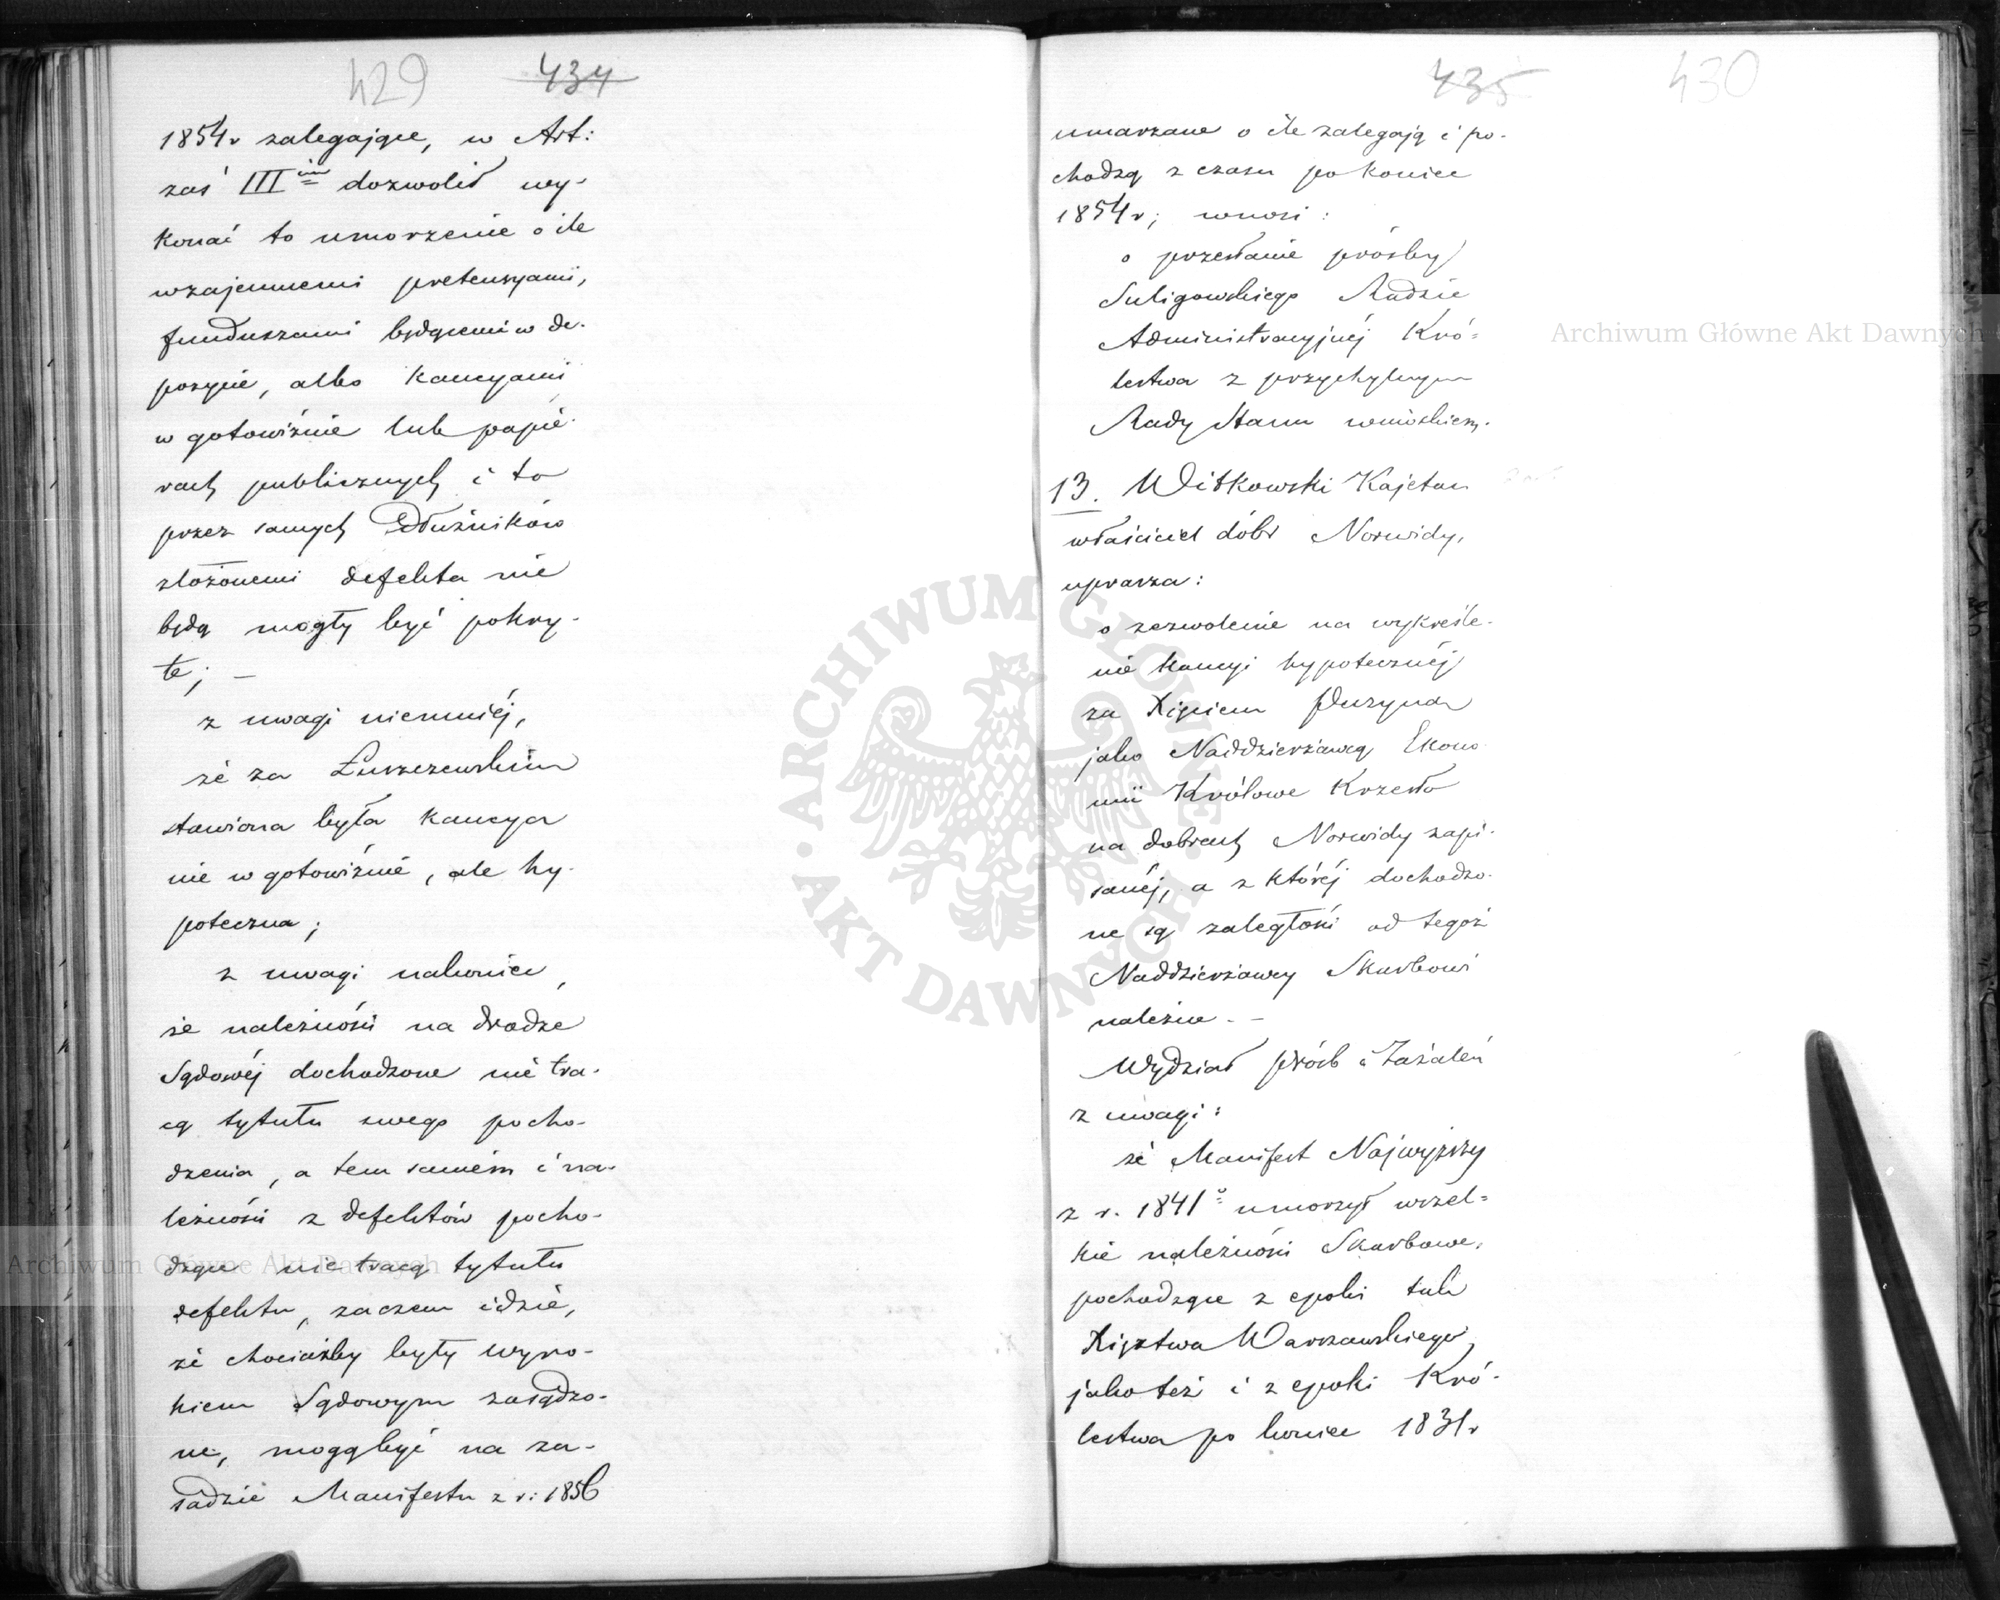 429 434
1854 r zalegające, w Art:
zaś III im dozwolił wy-
konać to umorzenie o ile
wzajemnemi pretensyami,
funduszami będącemi w de-
pozycie, albo kaucyami
w gotowiźnie lub papie-
rach publicznych i to
przez samych Dłużników
złożonemi defekta nie
będą mogły być pokry-
te; —
z uwagi niemniéj,
że za Łuszczewskim
stawiona była kaucya
nie w gotowiźnie, ale hy-
poteczna;
z uwagi nakoniec,
że należności na drodze
Sądowéj dochodzone nie tra-
cą tytułu swego pocho-
dzenia, a tem samém i na-
leżności z defektów pocho-
dzące nie tracą tytułu
defektu, zaczem idzie,
że chociażby były wyro-
kiem Sądowym zasądzo-
ne, mogą być na za-
sadzie Manifestu z r: 1856
435 430
umarzane o ile zalegają i po-
chodzą z czasu po koniec
1854 r; wnosi:
o przesłanie prośby
Suligowskiego Radzie
Administracyjnéj Kró-
lestwa z przychylnym
Rady Stanu wnioskiem.
13. Witkowski Kajetan
właściciel dóbr Norwidy,
uprasza:
o zezwolenie na wykreśle-
nie kaucyi hypotecznéj
za Xięciem
jako Naddzierżawcą Ekono-
mii Królowe Krzesło
na dobrach Norwidy zapi-
sanéj, a z któréj dochodzo-
ne są zaległości od tegoż
Naddzierżawcy Skarbowi
należne. —
Wydział Próśb i Zażaleń
z uwagi:
że Manifest Najwyższy
z r. 1841 o umorzył wszel-
kie należności Skarbowe,
pochodzące z epoki tak
Xięztwa Warszawskiego,
jako też i z epoki Kró-
lestwa po koniec 1831 r
Archiwum Główne Akt Dawnych
Archiwum Główne Akt Dawnych
ARCHIWUM GŁÓWNE AKT DAWNYCH